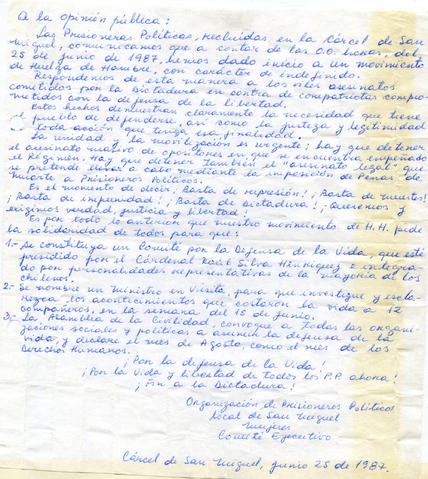 A la opinión pública:
Las Prisioneras Políticas, recluidas en la Cárcel de San
Miguel, comunicamos que a contar de las 0.0 horas, del
25 de junio de 1987, hemos dado inicio a un movimiento
de Huelga de Hambre, con carácter de indefinido.
Respondemos de esta manera a los viles asesinatos
cometidos por la Dictadura en contra de compatriotas compro-
metidos con la defensa de la libertad.
Estos hechos demuestran claramente la necesidad que tiene
el pueblo de defenderse, así como la justeza y legitimidad
de toda acción que tenga esa finalidad.
La unidad y la movilización es urgente; hay que detener
el asesinato masivo de opositores en que se encuentra empeñado
el Régimen. Hay que detener también el "asesinato legal" que
se pretende llevar a cabo mediante la imposición de Penas de
Muerte a Prisioneros Políticos.
Es el momento de decir ¡Basta de represión! ¡Basta de muertes!
¡Basta de impunidad! ¡Basta de Dictadura! ¡Queremos y
exigimos verdad, justicia y libertad!
Es por todo lo anterior que nuestro movimiento de H.H. pide
la solidaridad de todos para que:
1.- Se constituya un Comité por la Defensa de la Vida, que esté
presidido por el Cardenal Raúl Silva Henríquez e integra-
do por personalidades representativas de la mayoría de los
chilenos.
2.- Se nombre un Ministro en Visita, para que investigue y escla-
rezca los acontecimientos que costaron la vida a 12
compañeros, en la semana del 15 de junio.
3.- La Asamblea de la Civilidad, convoque a todas las organi-
zaciones sociales y políticas a asumir la defensa de la
vida, y declare el mes de Agosto, como el mes de los
Derechos Humanos.
¡Por la defensa de la Vida!
¡Por la Vida y libertad de todos los P.P. ahora!
¡Fin a la Dictadura!
Organización de Prisioneros Políticos
local de San Miguel
Mujeres
Comité Ejecutivo
Cárcel de San Miguel, junio 25 de 1987.